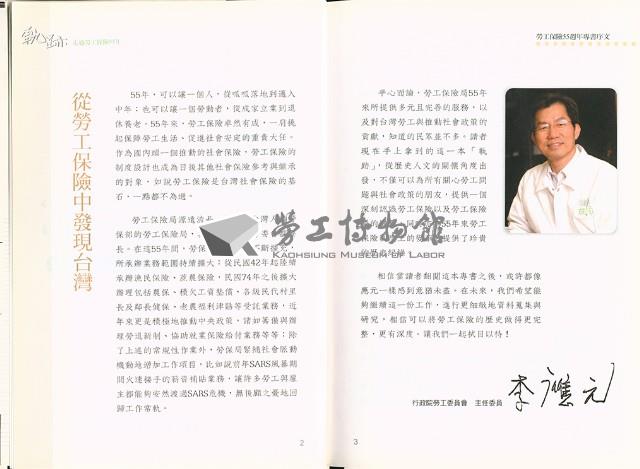 軌跡 走過勞工保險55年
從勞工保險中發現台灣
55年，可以讓一個人，從呱呱落地到邁入
中年；也可以讓一個勞動者，從成家立業到退
休養老。55年來，勞工保險卓然有成，一肩挑
起保障勞工生活、促進社會安定的重責大任。
作為國內頭一個推動的社會保險，勞工保險的
制度設計也成為日後其他社會保險參考與繼承
的對象，如說勞工保險是台灣社會保險的基
石，一點都不為過。
勞工保險局源遠流
部的勞工保險局，
長。在這55年間，勞保
所承辦業務範圍持續擴大：從民國42年起陸續
承辦漁民保險、蔗農保險，民國74年之後擴大
辦理包括農保、積欠工資墊償、各級民代村里
長及鄰長健保、老農福利津貼等受託業務，近
年來更是積極地推動中央政策，諸如籌備與辦
理勞退新制、協助就業保險給付業務等等；除
了上述的常規性作業外，勞保局緊隨社會脈動
機動地增加工作項目，比如說前年SARS風暴期
間火速接手的薪資補貼業務，讓許多勞工與雇
主都能夠安然渡過SARS危機，無後顧之憂地回
歸工作常軌。
2
勞工保險55週年專書序文
平心而論，勞工保險局55年
來所提供多元且完善的服務，以
及對台灣勞工與推動社會政策的
貢獻，知道的民眾並不多。讀者
現在手上拿到的這一本「軌
跡」，從歷史人文的關懷角度出
發，不僅可以為所有關心勞工問
題與社會政策的朋友，提供一個
深刻認識勞工保險以及勞工保險
55年來勞工
提供了珍貴
相信當讀者翻閱這本專書之後，或許都像
應元一樣感到意猶未盡。在未來，我們希望能
夠繼續這一份工作，進行更細緻地資料蒐集與
研究，相信可以將勞工保險的歷史做得更完
整、更有深度。讓我們一起拭目以待！
行政院勞工委員會 主任委員 李應元
3
勞工博物館
KAOHSIUNG MUSEUM OF LABOR